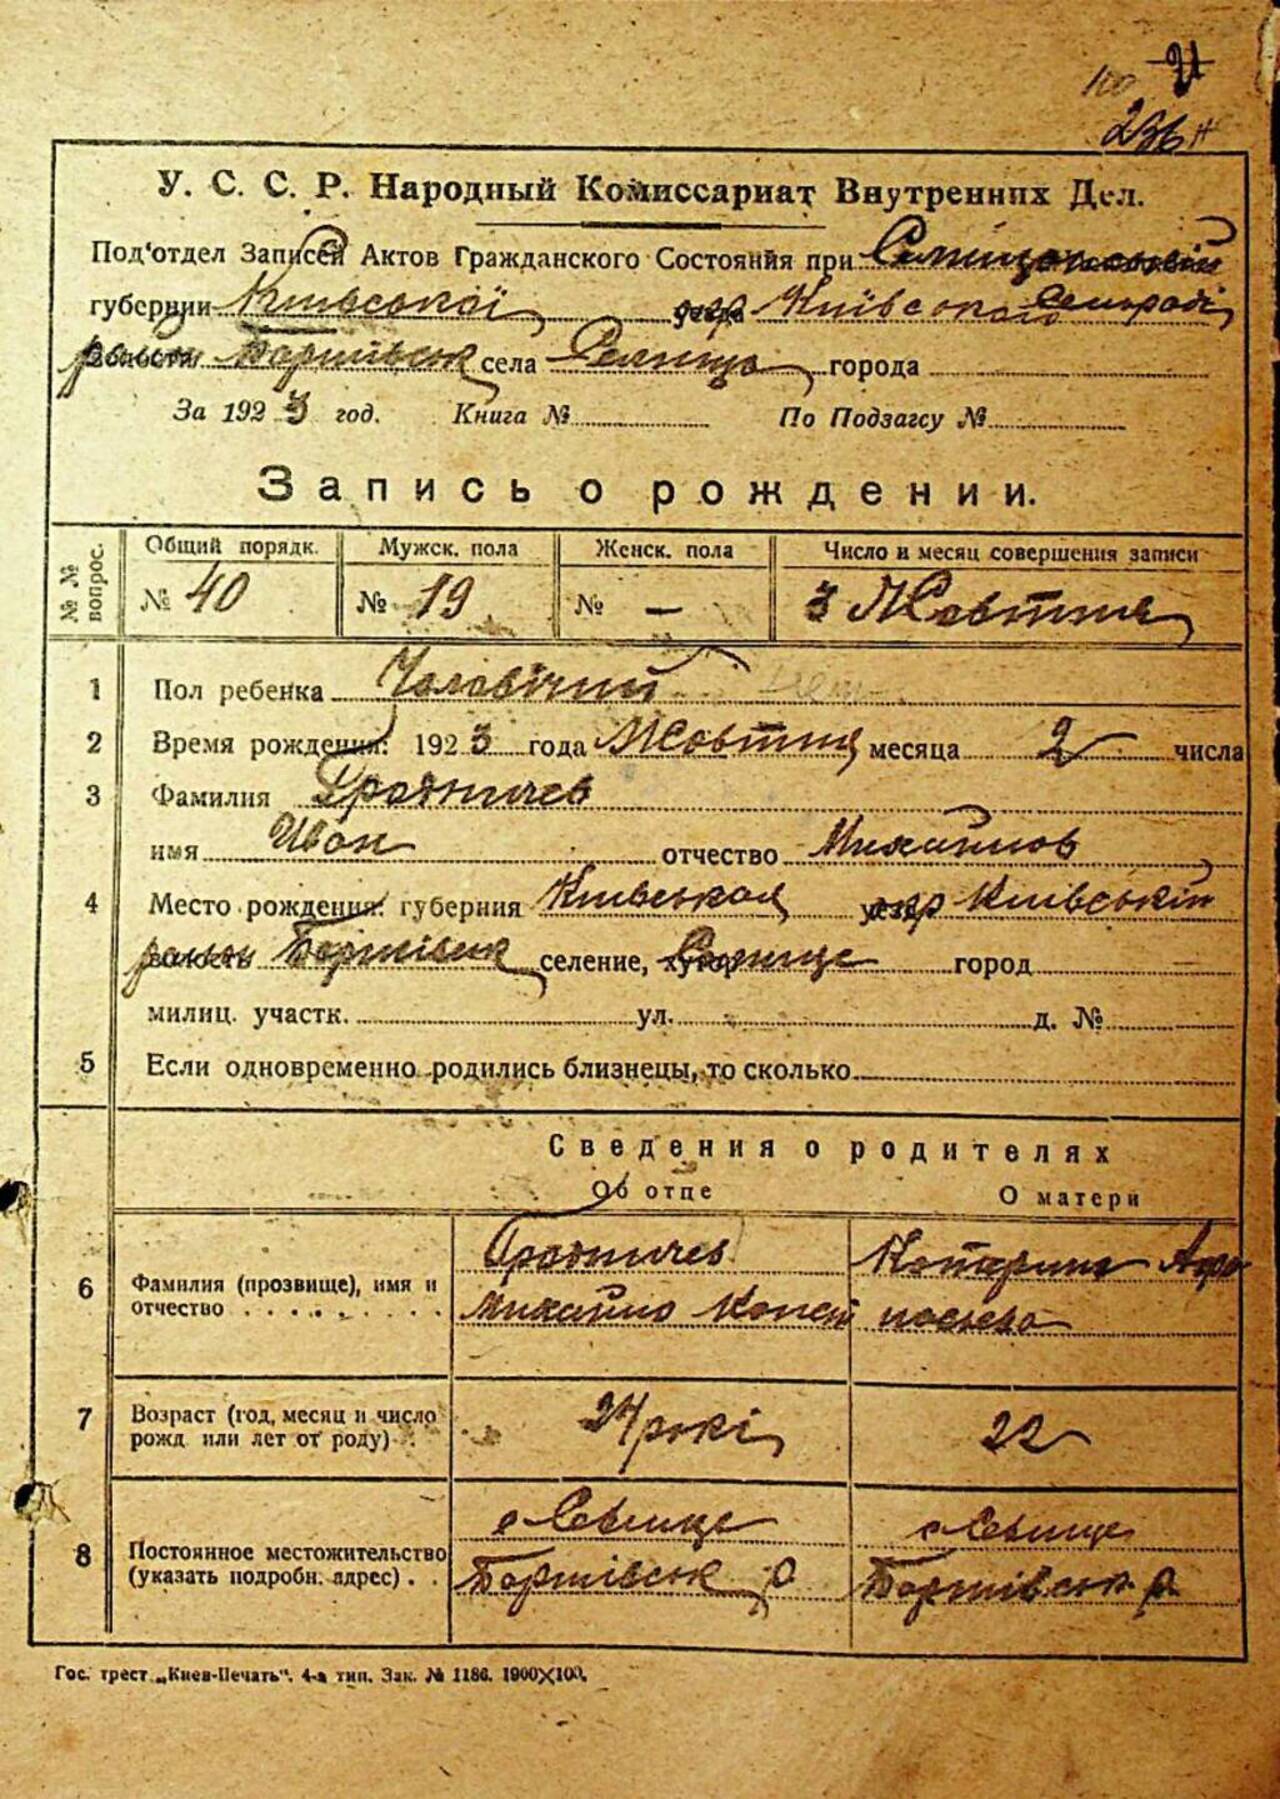 100 21
236
У. С. С. Р. Народный Комиссариат Внутренних Дел.
Под'отдел Записей Актов Гражданского Состояния при
губернии Київської окр Київської Сельраді
район Баришівськ села Селище города
За 1923 год. Книга № По Подзагсу №
Запись о рождении.
№№ вопрос. Общий порядк. Мужск. пола Женск. пола Число и месяц совершения записи
№ 40 № 19 № — 3 Жовтня
1 Пол ребенка Чоловічий
2 Время рождения: 1923 года Жовтня месяца 2 числа
3 Фамилия
имя Иван отчество Михайлов
4 Место рождения: губерния Київськая окр Київській
район Баришівськ селение, хутор Селище город
милиц. участк. ул. д. №
5 Если одновременно родились близнецы, то сколько
Сведения о родителях
Об отце О матери
6 Фамилия (прозвище), имя и
отчество
Михайло Катерина
7 Возраст (год, месяц и число
рожд или лет от роду) 24 рокі 22
8 Постоянное местожительство
(указать подробн. адрес)
с Селище с Селище
Баришівськ р Баришівськ р.
Гос. трест „Киев-Печать“. 4-я тип. Зак. № 1186. 1900×100.